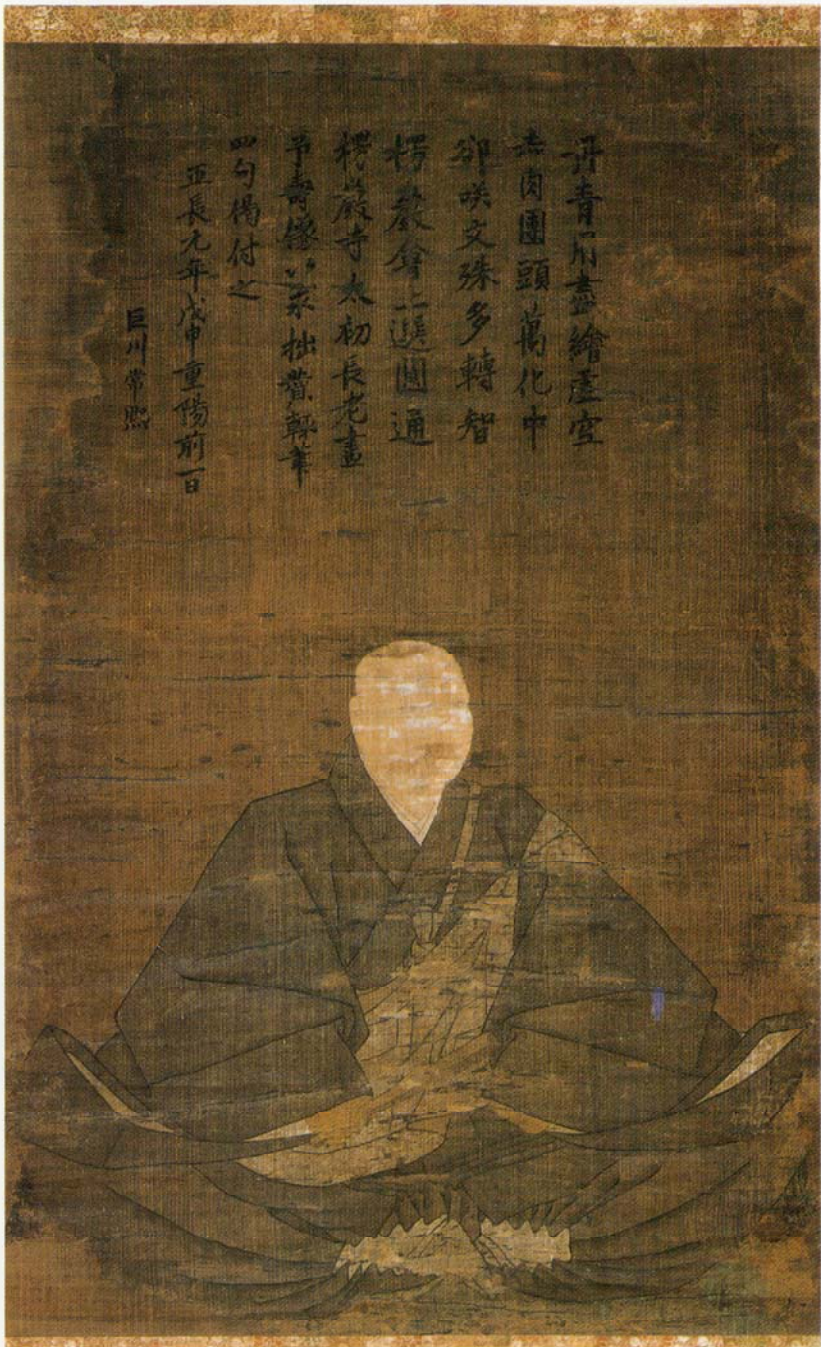 丹青用盡繪虚空
赤肉團頭萬化中
却咲文殊多轉智
楞嚴會上選圓通
楞嚴寺太初長老畫
予壽像以求拙賛輙筆
四句偈付之
正長元年戊申重陽前一日
巨川常熙